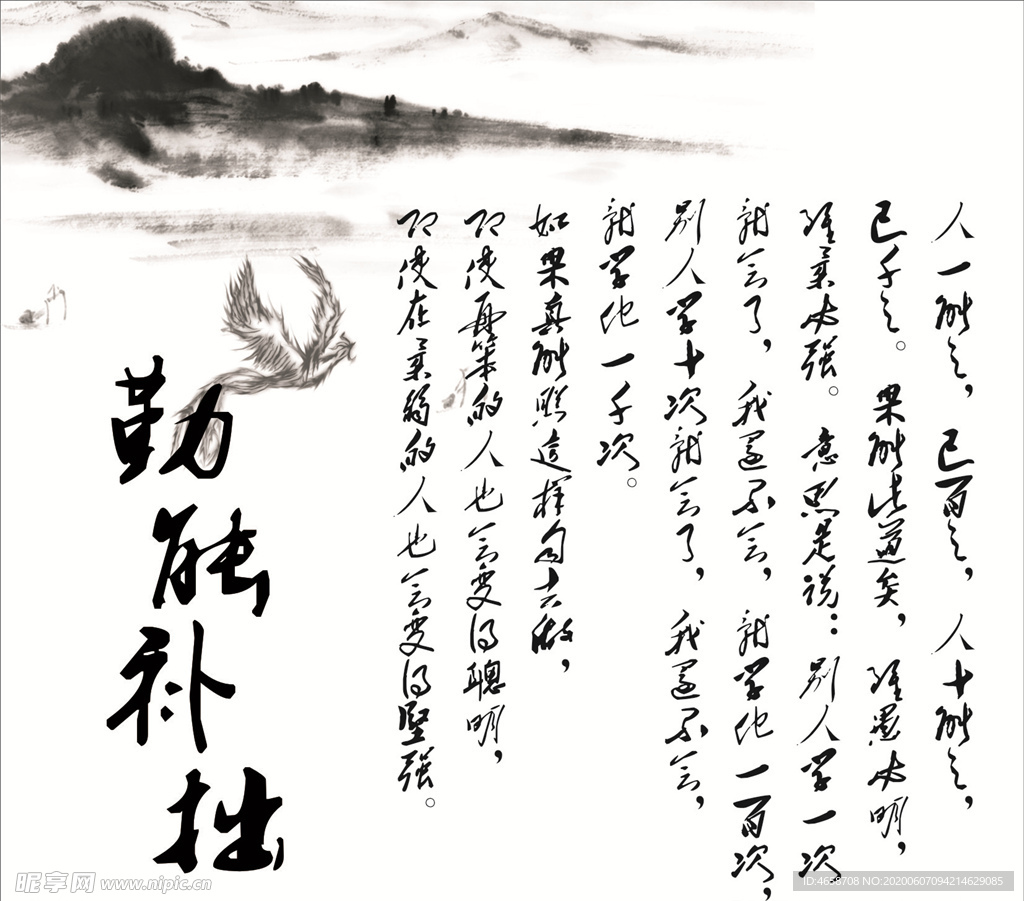 人一能之，己百之，人十能之，
己千之。果能此道矣，虽愚必明，
虽柔必强。意思是说：别人学一次
就会了，我还不会，就学他一百次，
别人学十次就会了，我还不会，
就学他一千次。
如果真能照这样去做，
即使再笨的人也会变得聪明，
即使在柔弱的人也会变得坚强。
勤能补拙
昵享网 www.nipic.cn
ID:4658708 NO:20200607094214629085